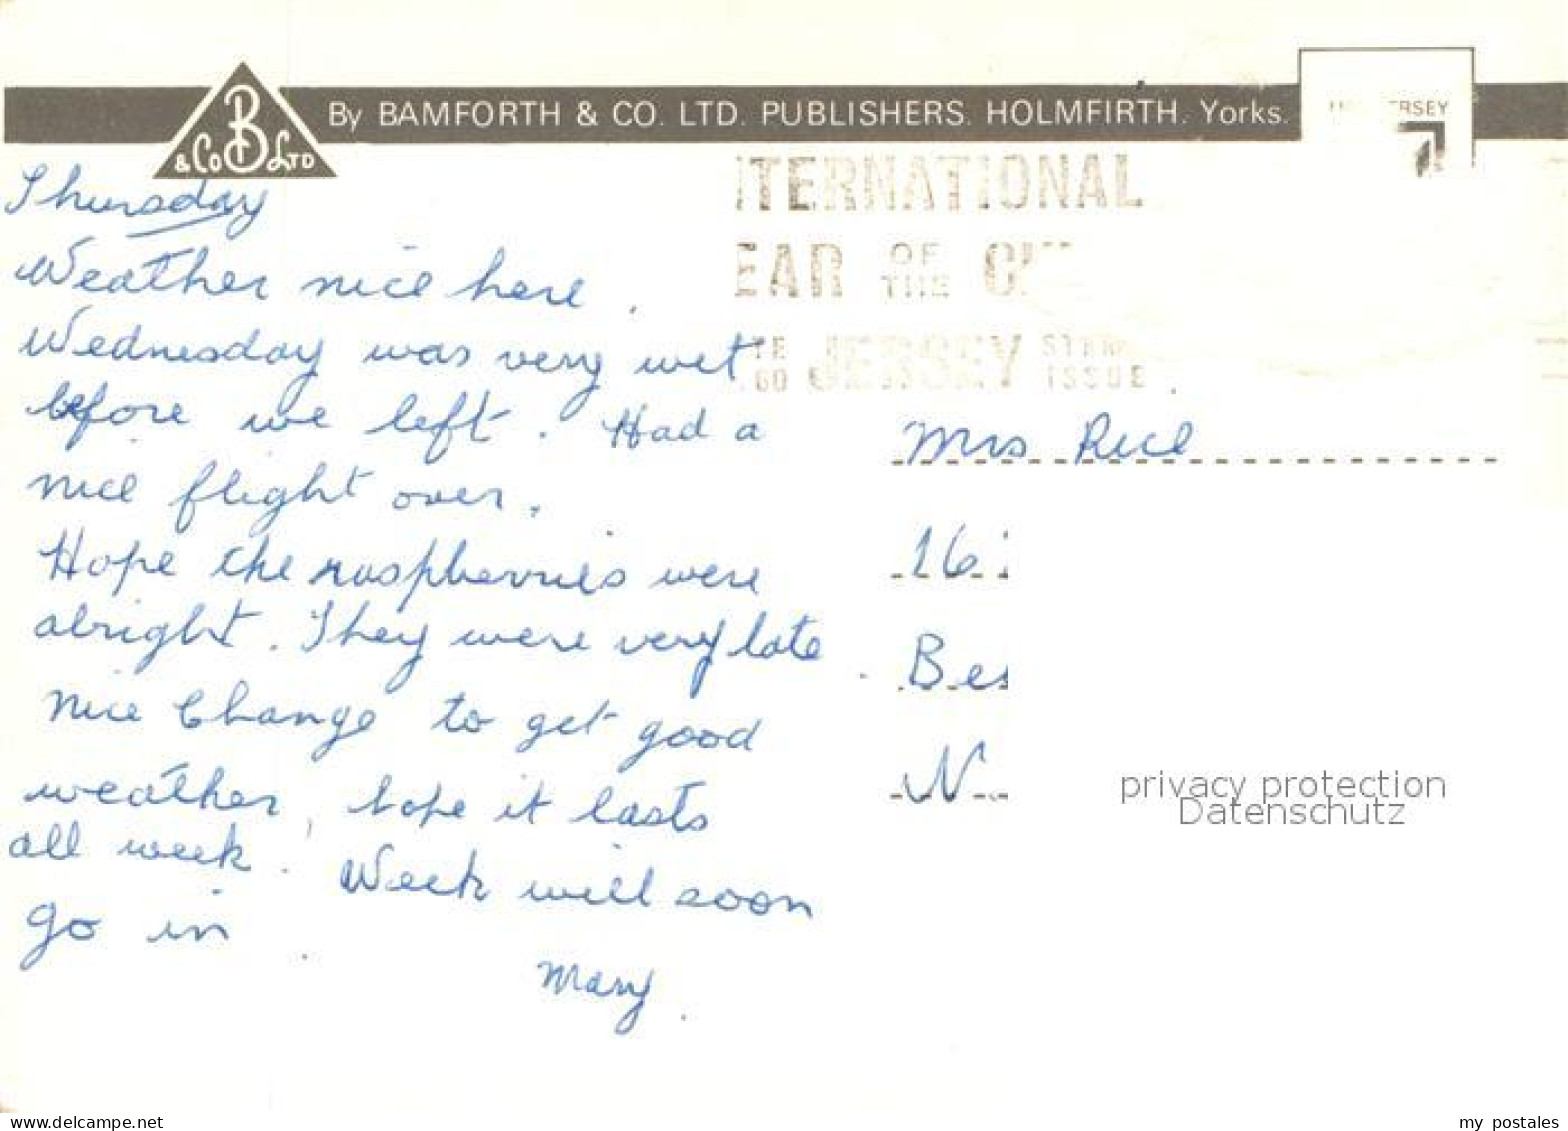 By BAMFORTH & CO. LTD. PUBLISHERS. HOLMFIRTH. Yorks.
B
& Co Ltd
ERSEY
Thursday
Weather nice here.
Wednesday was very wet
before we left. Had a
nice flight over.
Hope the raspberries were
alright. They were very late.
Nice Change to get good
weather, hope it lasts
all week. Week will soon
go in.
Mary.
ITERNATIONAL
EAR OF THE
JERSEY
ISSUE
Mrs Rice
16
Bes
N
privacy protection
Datenschutz
www.delcampe.net
my_postales